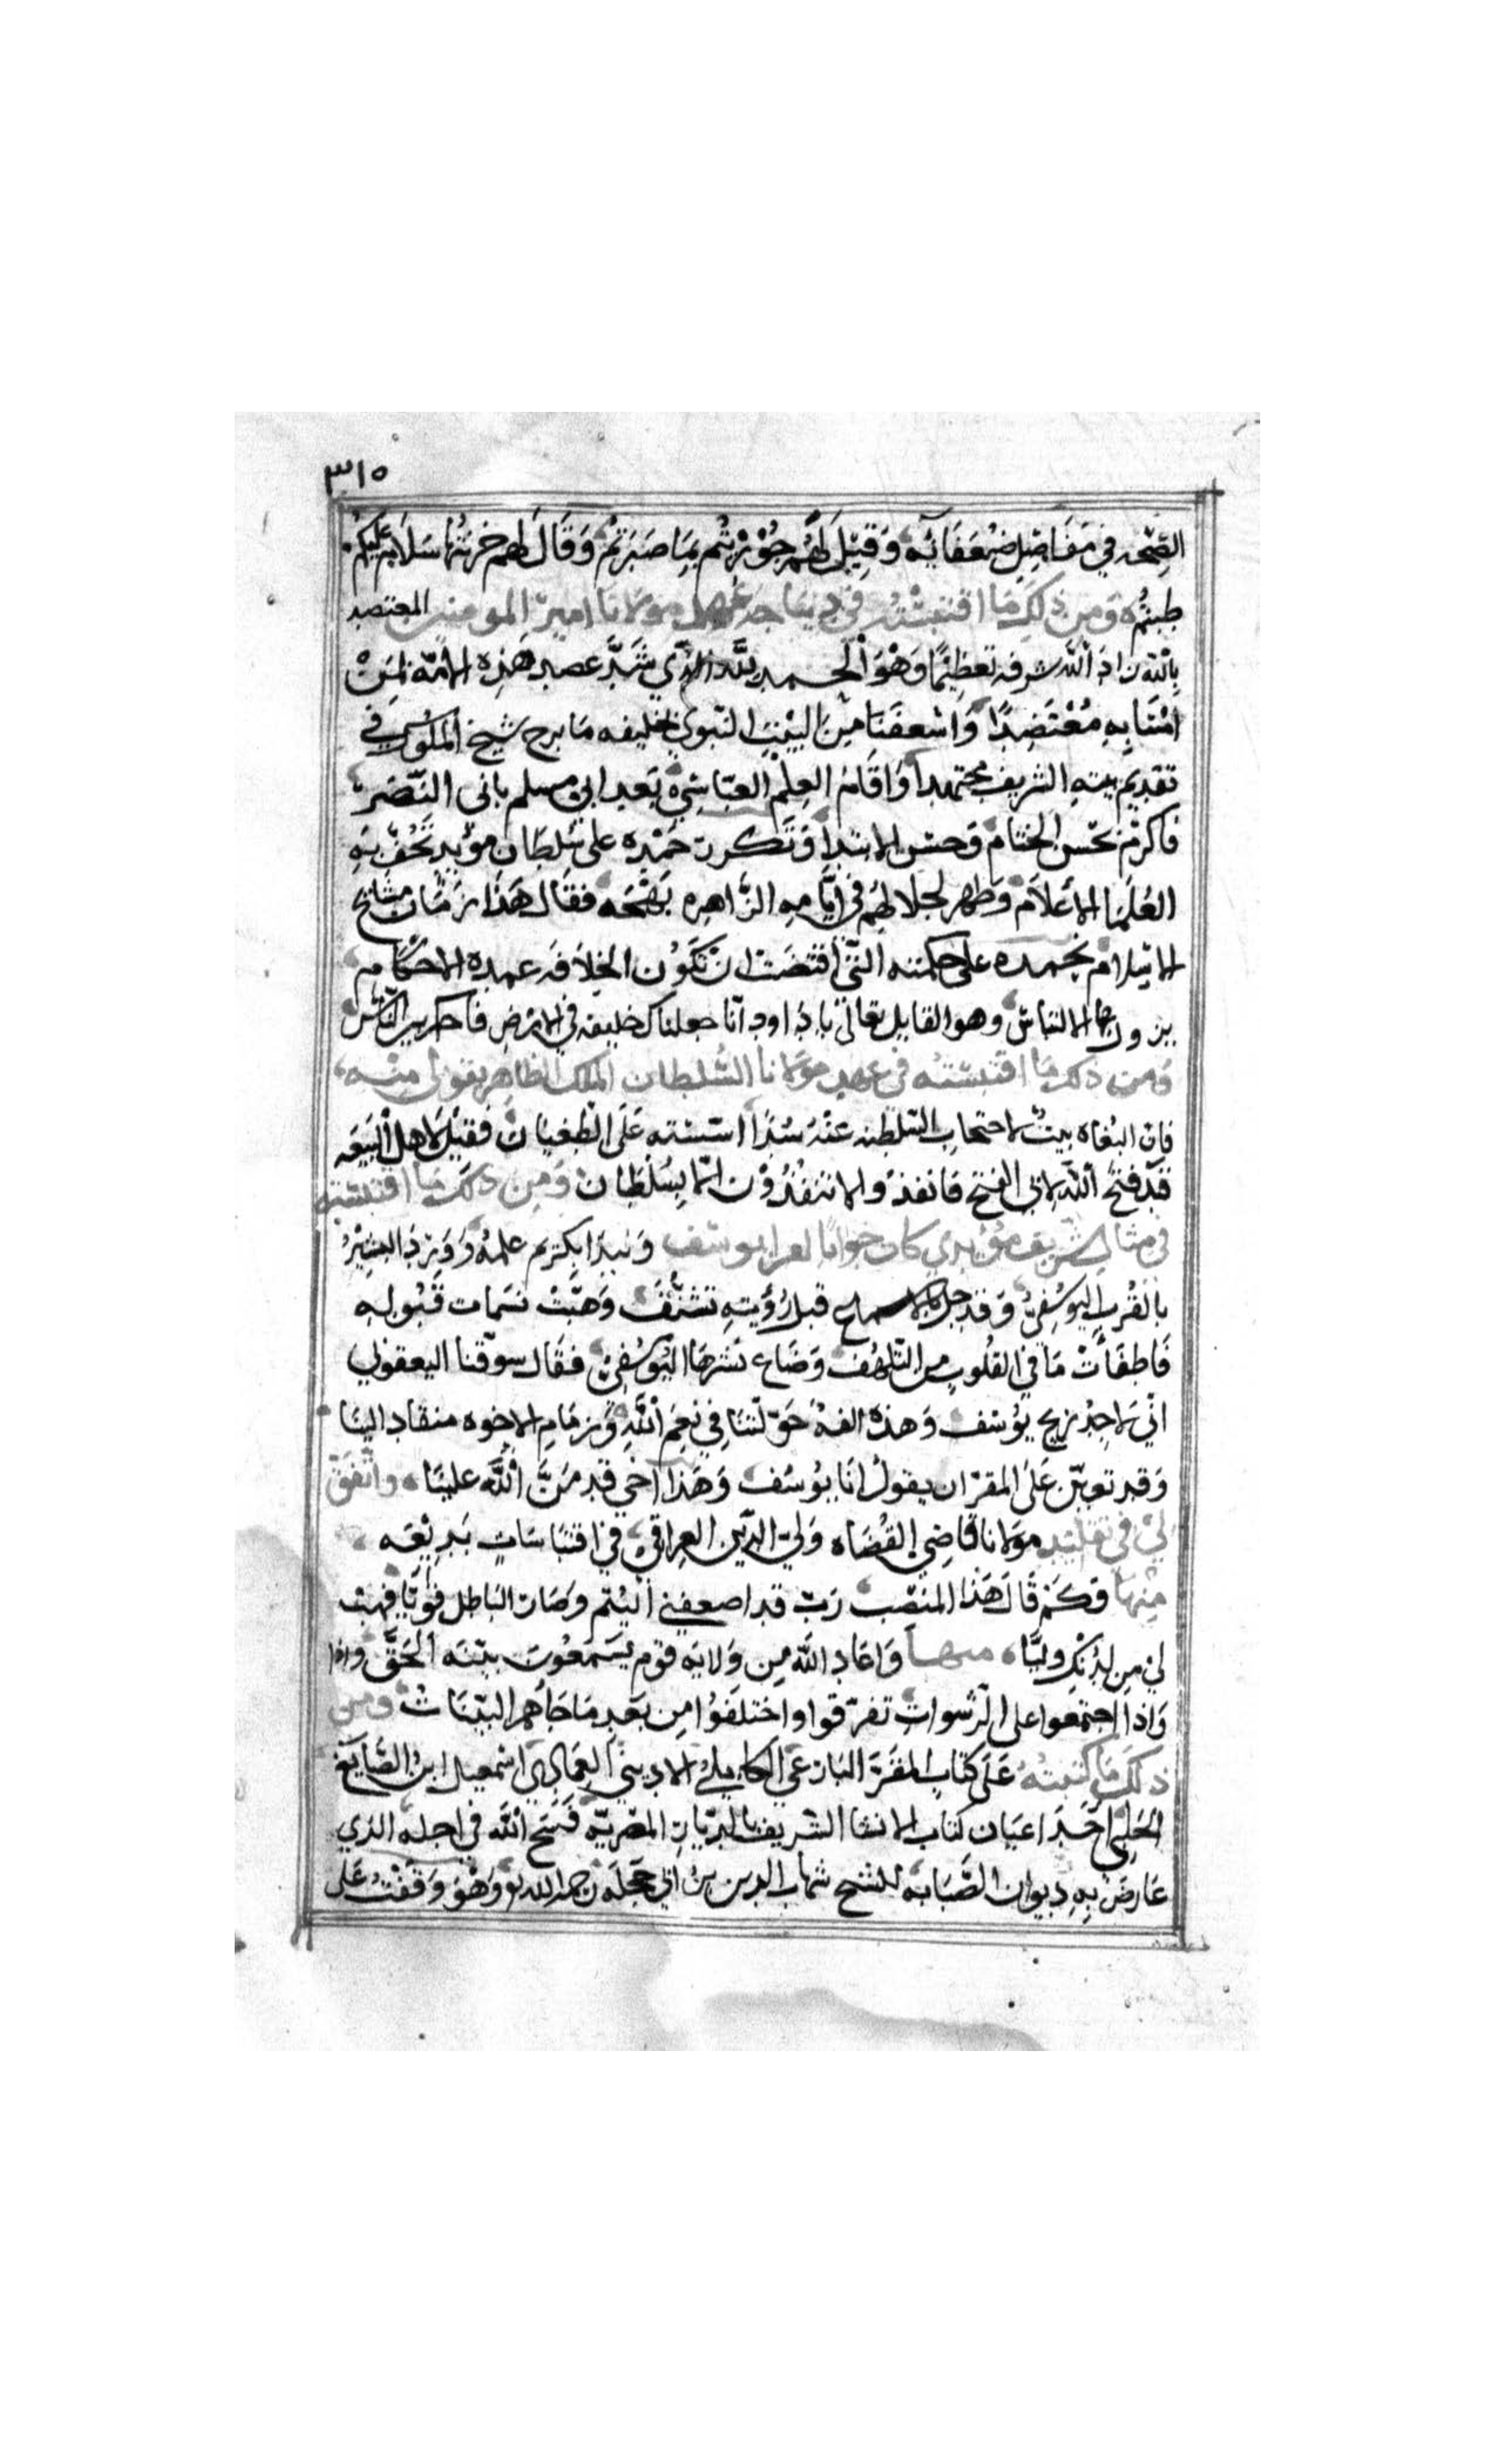 ٣١٥
الصحه في مفاصل ضعفائه وقيل لهم جوزيتم بما صبرتم وقال لهم خزنتها سلام عليكم
طبتم ومن ذلك ما اقتبسته في ديباجة عهد مولانا امير المومنين المعتضد
بالله زاد الله شرفه تعظيما وهو الحمد لله الذي شد عصد هذه الامة لمن
امتنا به معتضدا واسعفنا من البيت النبوي بخليفه ما برح شيخ الملوك في
تقديم بيته الشريف مجتهدا واقام العلم العباسي بعد ابي مسلم بابي النصر
فاكرم بحسن الختام وحسن الابتدا وتكررت حمده على سلطان مؤيد تحف به
العلما الاعلام وظهر لجلالهم في ايامه الزاهره بهجه فقال هذا زمان مشايخ
الاسلام نحمده على حكمته التي اقتضت ان تكون الخلافه عمدة الاحكام
يزول بها الالتباس وهو القايل تعالى يا داود انا جعلناك خليفه في الارض فاحكم بين الناس
ومن ذلك ما اقتبسته في عهد مولانا السلطان الملك الظاهر بقولي منه
فان البغاه بيت لاحتجاب السلطنه عنه سدا اسسته على الطغيان فقيل لاهل البيعه
قد فتح الله لابي الفتح فانفذوا لا تنفذون الا بسلطان ومن ذلك ما اقتبسته
في مثال شريف مؤيدي كان جوابا لقرا يوسف ونبدا بكريم علمه ورود البشير
بالقرب اليوسفي وقد جل بالاسماع قبل رؤيته تشنف وهبت نسمات قبوله
فاطفات ما في القلوب من التلهف وضاع نشرها اليوسفي فقال سوقنا اليعقوبي
اني لاجد ريح يوسف وهذه الفة خولتنا في نعم الله وزمام الاخوه منقاد الينا
وقد تعين على المقر ان يقول انا يوسف وهذا اخي قد من الله علينا واتفق
لي في تقليد مولانا قاضي القضاه ولي الدين العراقي في اقتباسات بديعه
منها وكم قال هذا المنصب رب قد اضعفني اليتم وصار الباطل قويا فهب
لي من لدنك وليا منها واعاذ الله من ولايه قوم يسمعون بينه الحق واذا
واذا اجتمعوا على الرشوات تفرقوا واختلفوا من بعد ما جاهم البينات ومن
ذلك ما كتبته على كتاب المقر البارعي الكاملي الاديبي العمادي اسمعيل ابن الصايغ
الحلبي احد اعيان كتاب الانشا الشريف بالديار المصريه فسح الله في اجله الذي
عارض به ديوان الصبابه للشيخ شهاب الدين بن ابي حجله رحمه الله وهو وقفت على